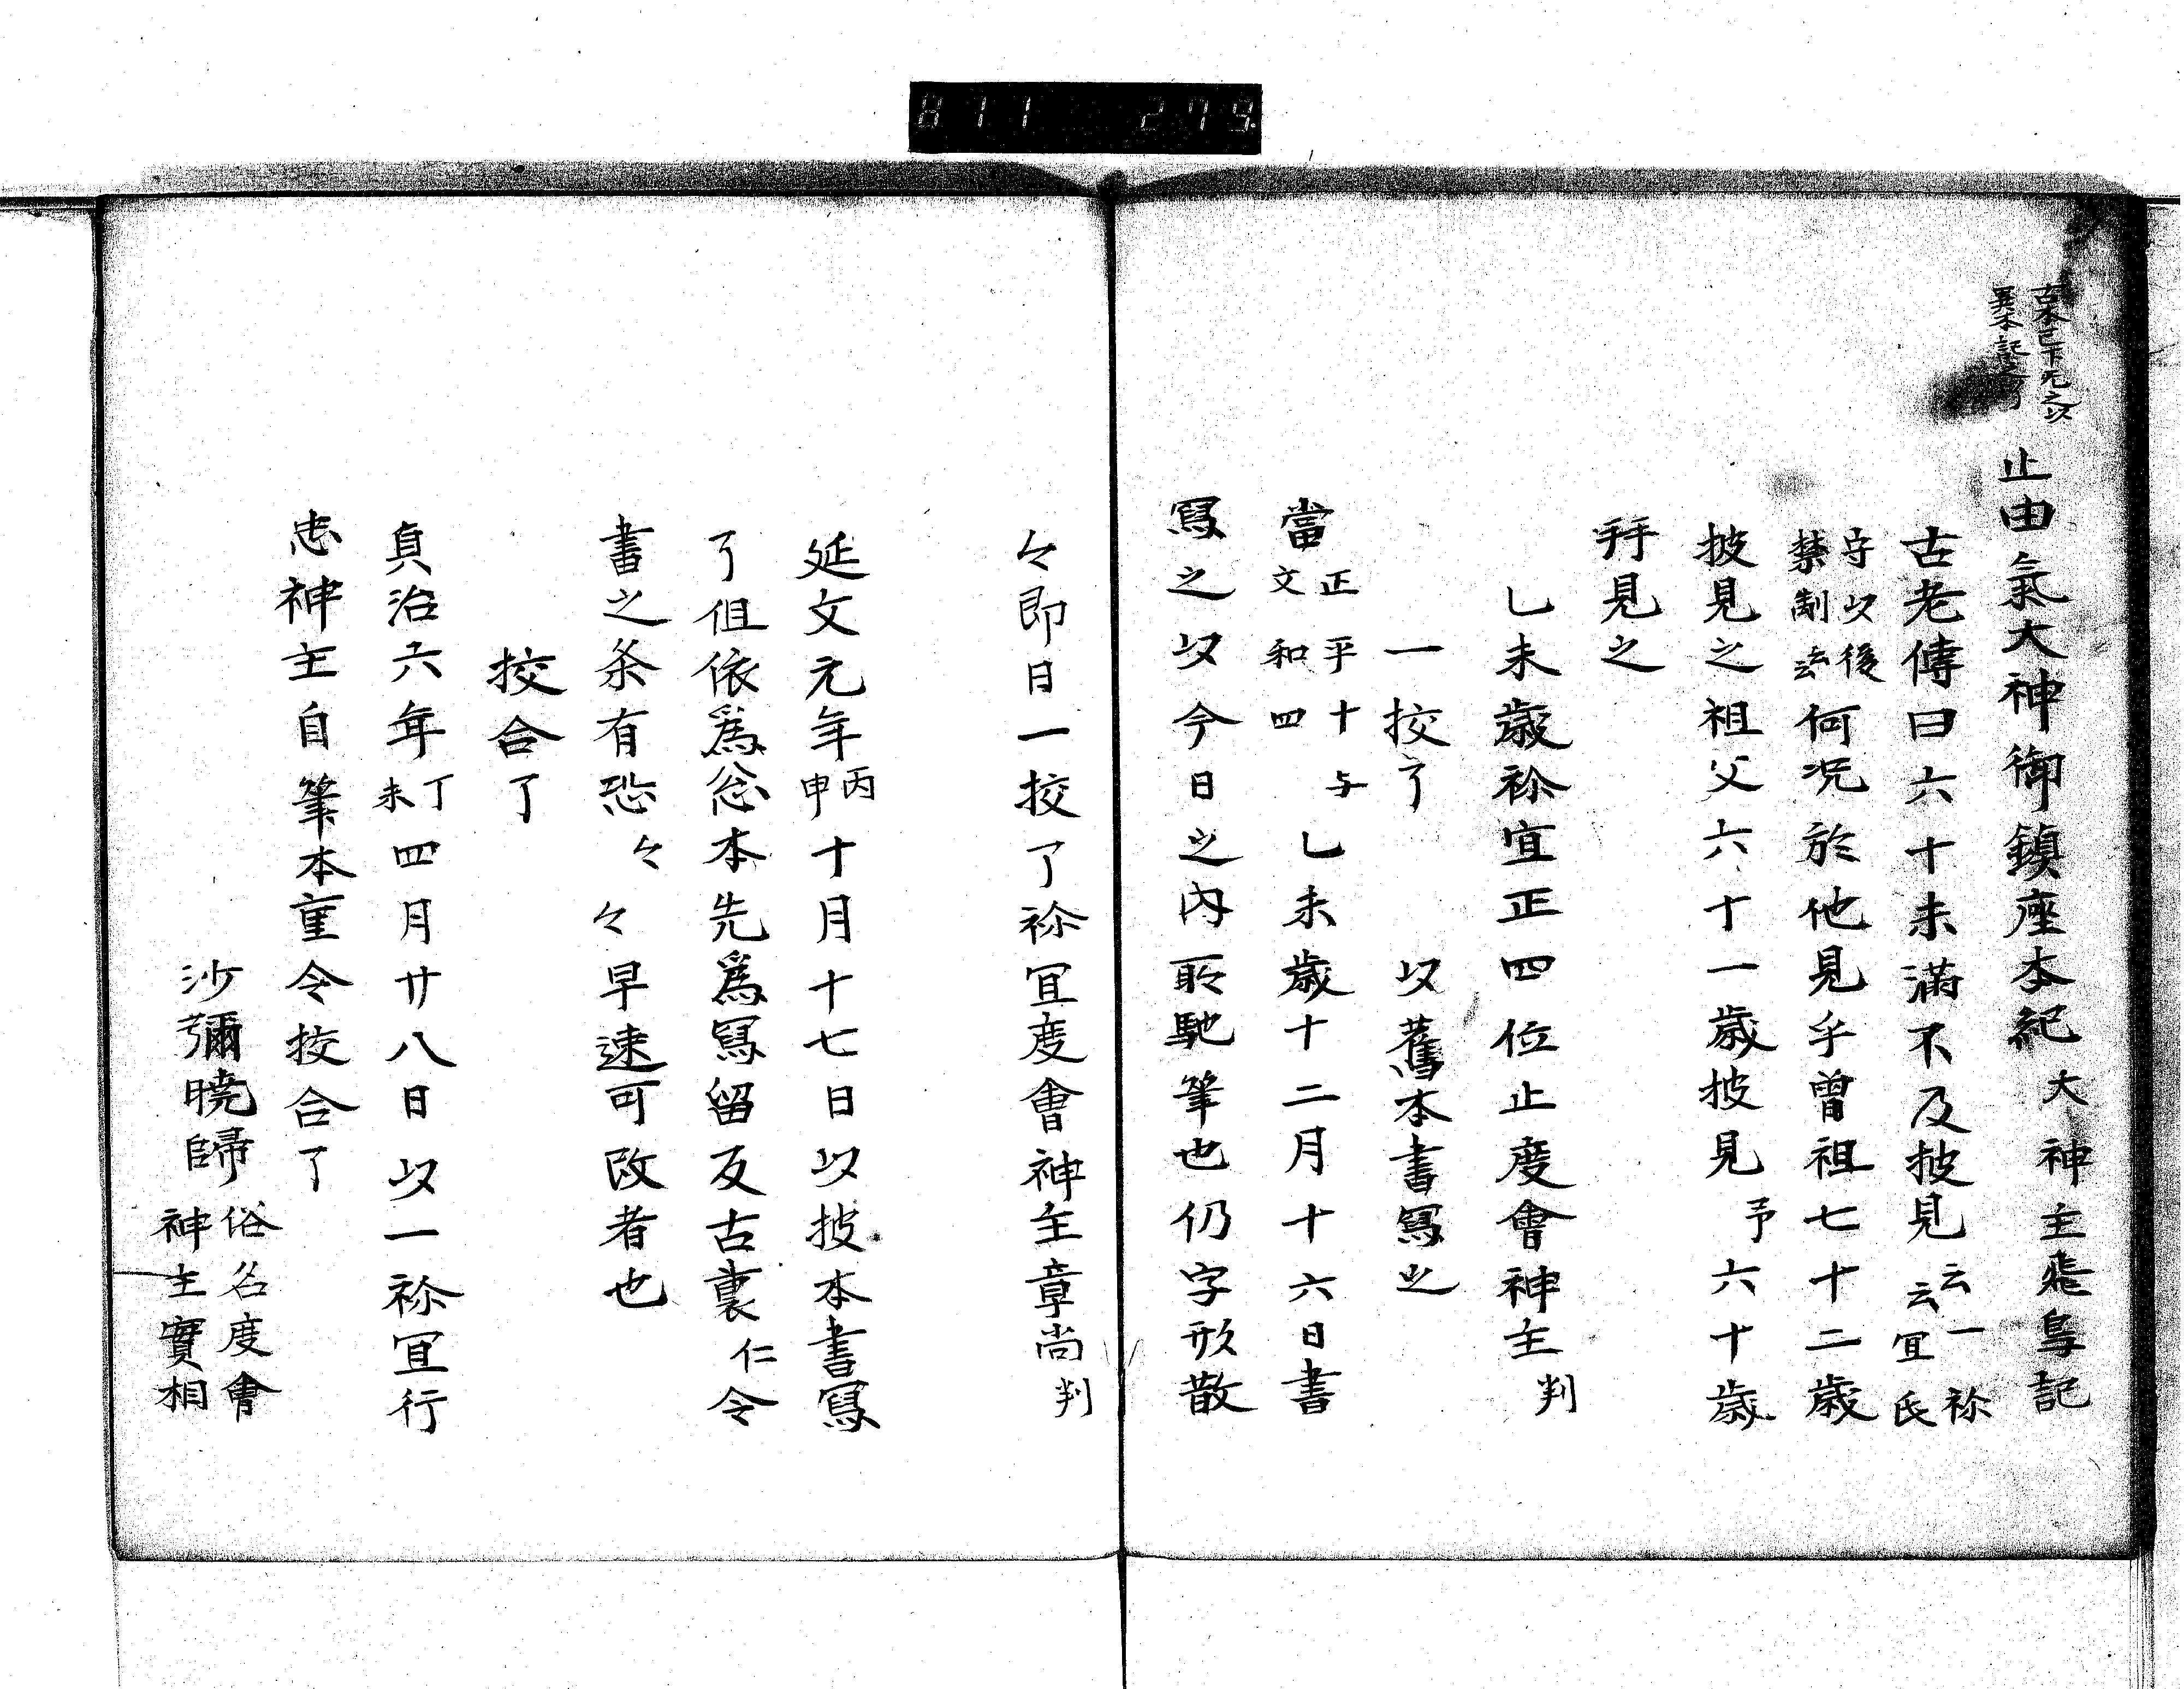 811 279
古本已下无之以
異本記之了
止由氣大神御鎮座本紀 大神主飛鳥記
古老傳曰六十未滿不及披見云云一祢宜氏
守以後禁制云云何况於他見乎曽祖七十二歳
披見之祖父六十一歳披見予六十歳
拜見之
乚未歳祢宜正四位止度會神主 判
一挍了 以舊本書寫之
當正平十与文和四乚未歳十二月十六日書
寫之以今日之内取馳筆也仍字形散
々即日一挍了祢冝度會神主章尚 判
延文元年丙申十月十七日以披本書寫
了但依爲忩本先爲寫留反古裏仁令
書之条有恐々々早速可改者也
挍合了
貞治六年丁未四月廿八日以一祢冝行
忠神主自筆本重令挍合了
沙彌曉歸俗名度會神主實相